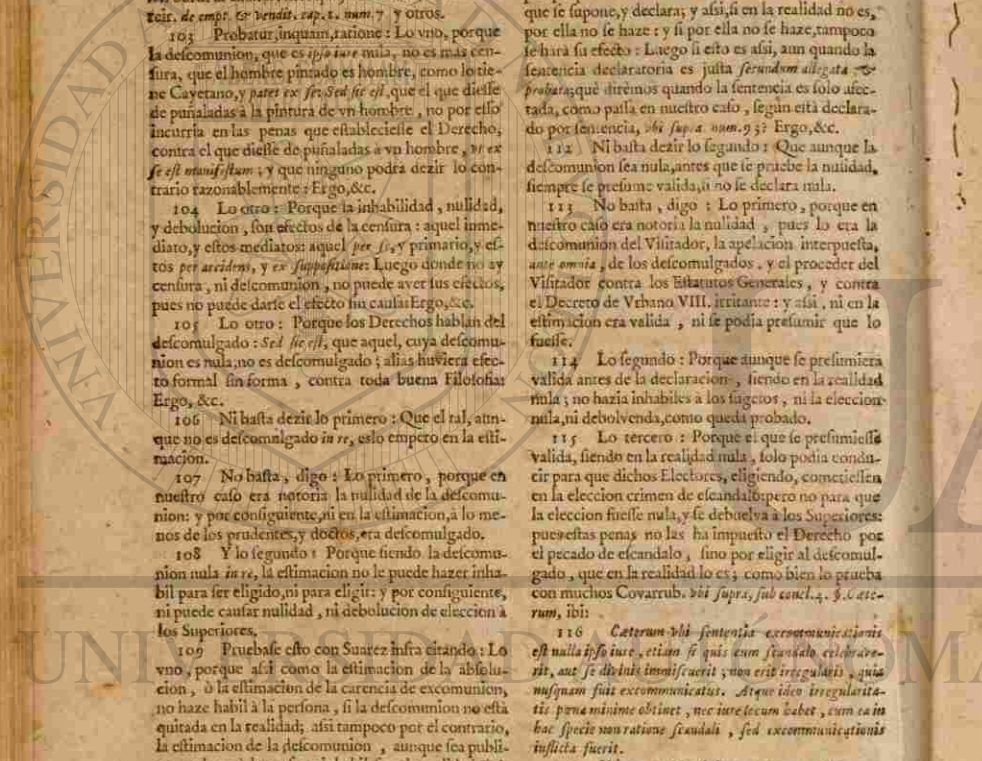 teir. de empt. & vendit. cap. 1. num. 7 y otros.
103 Probatur, inquam, ratione: Lo vno, porque
la descomunion, que es ipso iure nula, no es mas cen-
sura, que el hombre pintado es hombre, como lo tie-
ne Cayetano, y patet ex se: Sed sic est, que el que diesse
de puñaladas à la pintura de vn hombre, no por esso
incurria en las penas que estableciesse el Derecho,
contra el que diesse de puñaladas à vn hombre, vt ex
se est manifestum; y que ninguno podrà dezir lo con-
trario razonablemente: Ergo, &c.
104 Lo otro: Porque la inhabilidad, nulidad,
y debolucion, son efectos de la censura: aquel inme-
diato, y estos mediatos: aquel per se, y primario, y es-
tos per accidens, y ex suppositione: Luego donde no ay
censura, ni descomunion, no puede aver sus efectos,
pues no puede darse el efecto sin causa: Ergo, &c.
105 Lo otro: Porque los Derechos hablan del
descomulgado: Sed sic est, que aquel, cuya descomu-
nion es nula, no es descomulgado; alias huviera efec-
to formal sin forma, contra toda buena Filosofia:
Ergo, &c.
106 Ni basta dezir lo primero: Que el tal, aun-
que no es descomulgado in re, eslo empero en la esti-
macion.
107 No basta, digo: Lo primero, porque en
nuestro caso era notoria la nulidad de la descomu-
nion: y por consiguiente, ni en la estimacion, à lo me-
nos de los prudentes, y doctos, era descomulgado.
108 Y lo segundo: Porque siendo la descomu-
nion nula in re, la estimacion no le puede hazer inha-
bil para ser eligido, ni para eligir: y por consiguiente,
ni puede causar nulidad, ni debolucion de eleccion à
los Superiores.
109 Pruebase esto con Suarez infra citando: Lo
vno, porque assi como la estimacion de la absolu-
cion, ò la estimacion de la carencia de excomunion,
no haze habil à la persona, si la descomunion no està
quitada en la realidad; assi tampoco por el contrario,
la estimacion de la descomunion, aunque sea publi-
que se supone, y declara; y assi, si en la realidad no es,
por ella no se haze: y si por ella no se haze, tampoco
se harà su efecto: Luego si esto es assi, aun quando la
sentencia declaratoria es justa secundum allegata &
probata; què dirèmos quando la sentencia es solo afec-
tada, como passa en nuestro caso, segun està declara-
do por sentencia, vbi supra num. 93? Ergo, &c.
112 Ni basta dezir lo segundo: Que aunque la
descomunion sea nula, antes que se pruebe la nulidad,
siempre se presume valida, si no se declara nula.
113 No basta, digo: Lo primero, porque en
nuestro caso era notoria la nulidad, pues lo era la
descomunion del Visitador, la apelacion interpuesta,
ante omnia, de los descomulgados, y el proceder del
Visitador contra los Estatutos Generales, y contra
el Decreto de Vrbano VIII. irritante: y assi, ni en la
estimacion era valida, ni se podia presumir que lo
fuesse.
114 Lo segundo: Porque aunque se presumiera
valida antes de la declaracion, siendo en la realidad
nula; no hazia inhabiles à los sugetos, ni la eleccion
nula, ni debolvenda, como queda probado.
115 Lo tercero: Porque el que se presumiesse
valida, siendo en la realidad nula, solo podia condu-
cir para que dichos Electores, eligiendo, cometiessen
en la eleccion crimen de escandalo: pero no para que
la eleccion fuesse nula, y se debuelva à los Superiores:
pues estas penas no las ha impuesto el Derecho por
el pecado de escandalo, sino por eligir al descomul-
gado, que en la realidad lo es; como bien lo prueba
con muchos Covarrub. vbi supra, sub concl. 4. §. Cæte-
rum, ibi:
116 Cæterum vbi sententia excommunicationis
est nulla ipso iure, etiam si quis cum scandalo celebrave-
rit, aut se divinis immiscuerit; non erit irregularis, quia
nusquam fuit excommunicatus. Atque ideo irregularita-
tis pœna minime obtinet, nec iure locum habet, cum ea in
hac specie non ratione scandali, sed excommunicationis
inflicta fuerit.
UNIVERSIDAD
UA
UNIVERSIDAD AUTÓNOMA